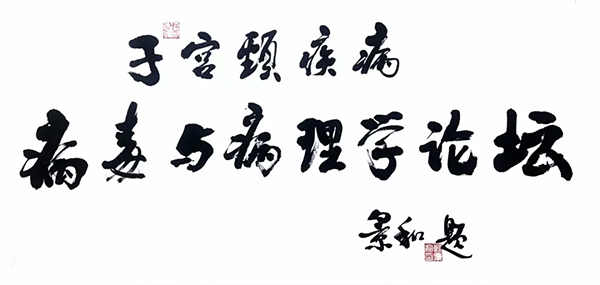 子宫颈疾病
病毒与病理学论坛
景和题